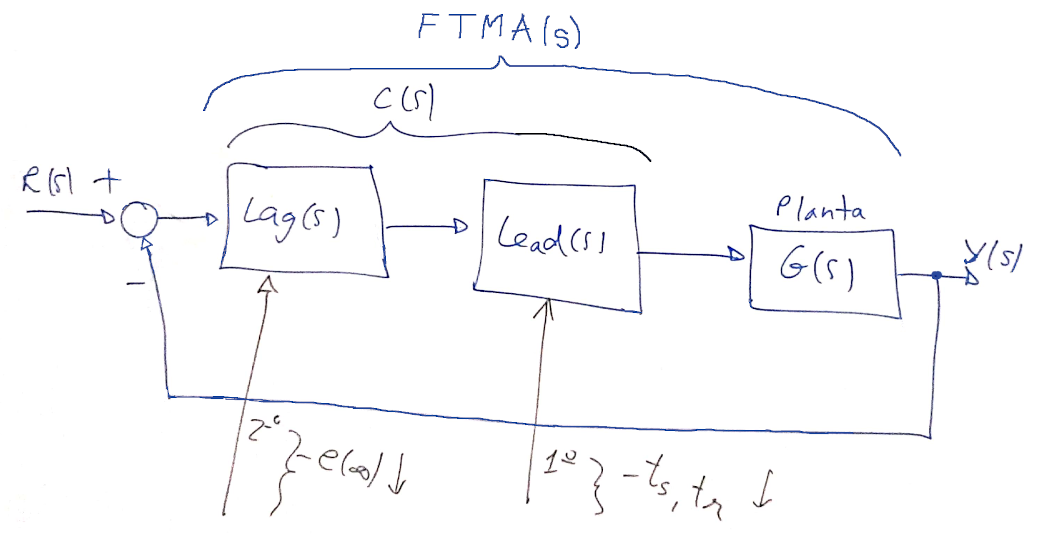 FTMA(s)
C(s)
R(s) +
Lag(s)
Lead(s)
Planta
G(s)
Y(s)
-
2º } - e(∞) ↓
1º } - ts, tr ↓